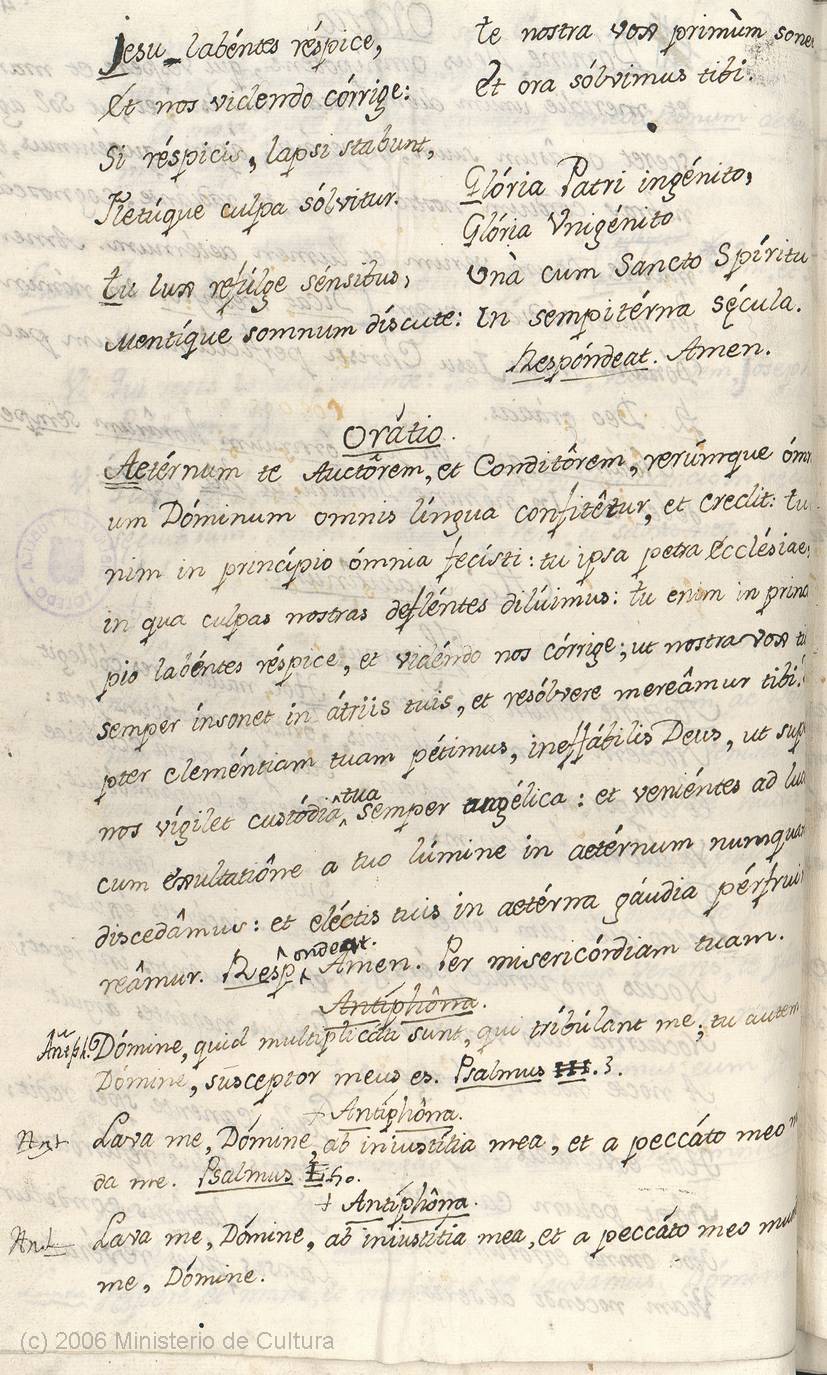 Jesu labéntes réspice,
Et nos videndo córrige:
Si réspicis, lapsi stabunt,
Fletúque culpa sólvitur.
tu lux refúlge sénsibus,
Mentíque somnum díscute:
te nostra vox primùm sone
Et ora sólvimus tibi.
Glória Patri ingénito,
Glória Vnigénito
Vnà cum Sancto Spíritu
In sempitérna sęcula.
Respóndeat. Amen.
Orátio.
Aetérnum te Auctôrem, et Conditôrem, rerúmque ómn
um Dóminum omnis língua confitêtur, et credit: tu
nim in princípio ómnia fecísti: tu ipsa petra Ecclésiae,
in qua culpas nostras defléntes dilúimus: tu enim in princ
pio labéntes réspice, et vidéndo nos córrige; ut nostra vox ti
semper ínsonet in átriis tuis, et resólvere mereâmur tibi.
pter cleméntiam tuam pétimus, ineffábilis Deus, ut sup
nos vígilet custódiâ tua semper angélica: et veniéntes ad luc
cum exultatiône a tuo lúmine in aetérnum numquam
discedâmus: et eléctis tuis in aetérna gáudia pérfrui
reâmur. Respondeat. Amen. Per misericórdiam tuam.
Antiphôna.
Antiph. Dómine, quid multiplicáti sunt, qui tríbúlant me; tu autem
Dómine, súsceptor meus es. Psalmus III. 3.
+ Antíphôna.
Ant Lava me, Dómine, ab iniustítia mea, et a peccáto meo m
da me. Psalmus L 50.
+ Antíphôna.
Ant. Lava me, Dómine, ab iniustítia mea, et a peccáto meo mund
me, Dómine.
(c) 2006 Ministerio de Cultura